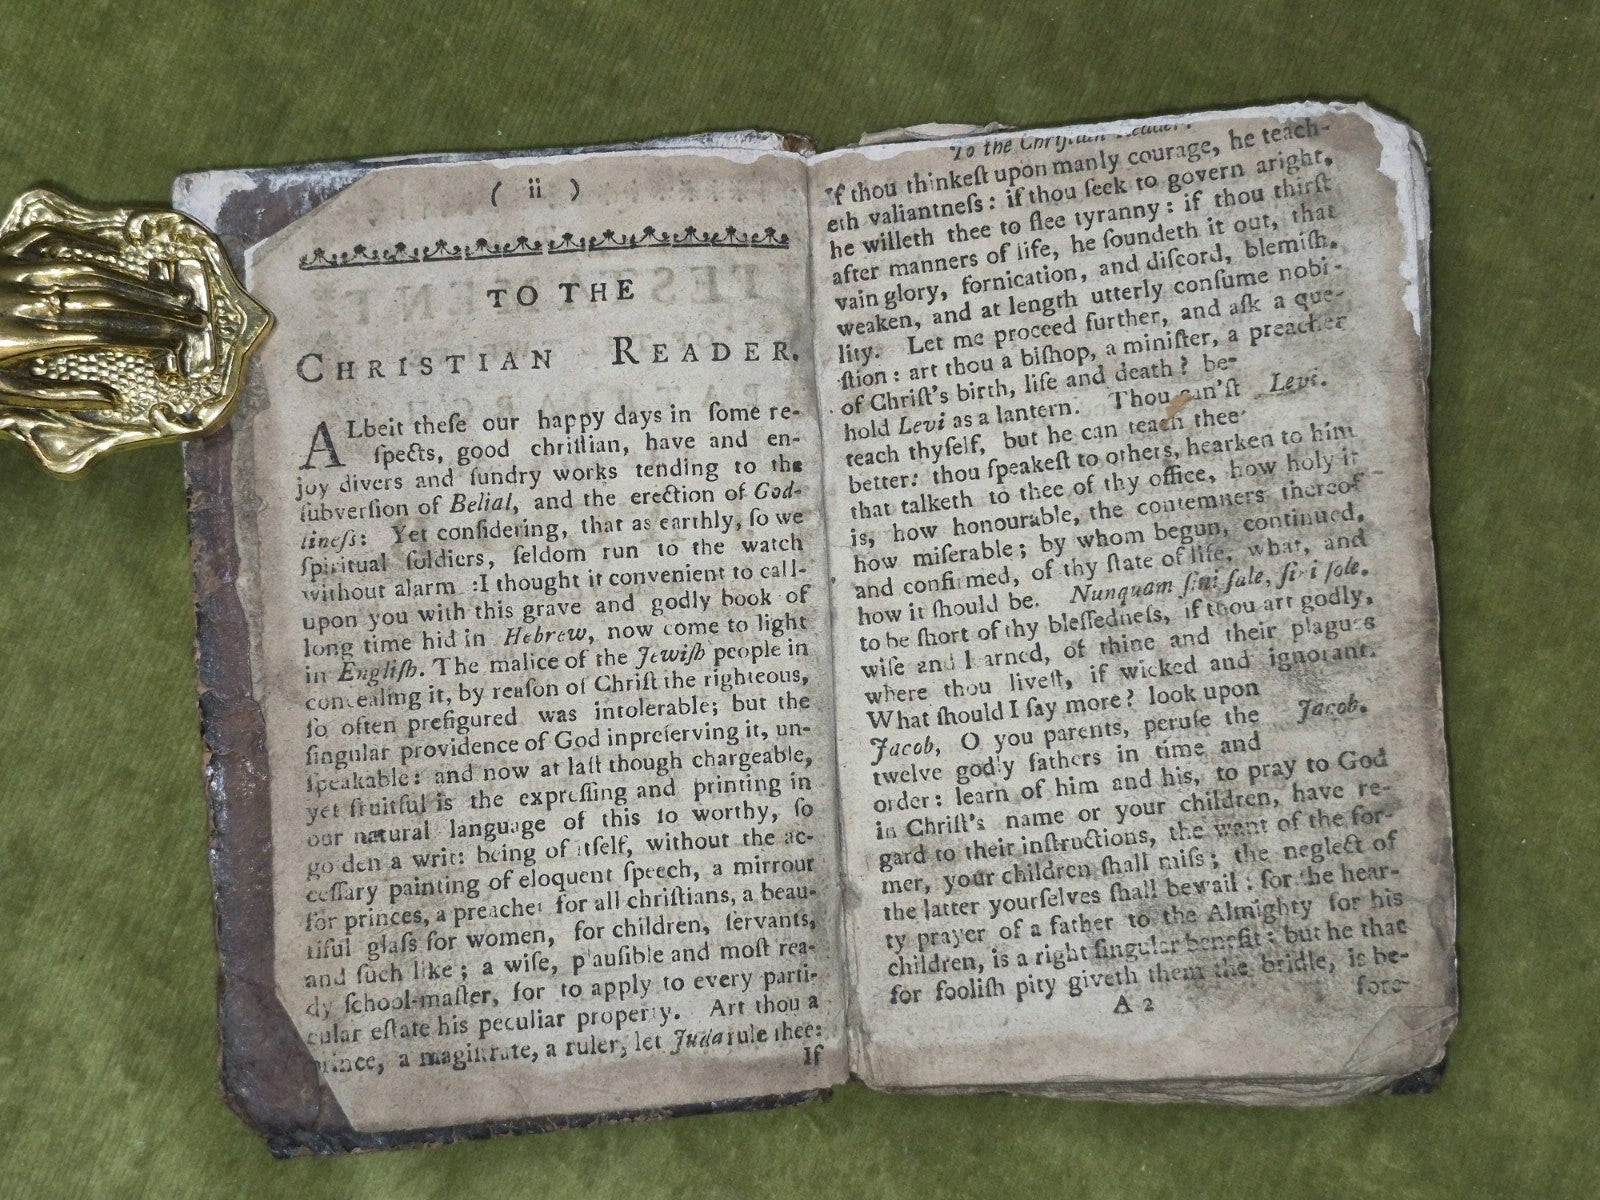 ( ii )
TO THE
CHRISTIAN READER.
ALbeit theſe our happy days in ſome re-
ſpects, good chriſtian, have and en-
joy divers and ſundry works tending to the
ſubverſion of Belial, and the erection of God-
lineſs: Yet conſidering, that as earthly, ſo we
ſpiritual ſoldiers, ſeldom run to the watch
without alarm :I thought it convenient to call-
upon you with this grave and godly book of
long time hid in Hebrew, now come to light
in Engliſh. The malice of the Jewiſh people in
concealing it, by reaſon of Chriſt the righteous,
ſo often prefigured was intolerable; but the
ſingular providence of God inpreſerving it, un-
ſpeakable: and now at laſt though chargeable,
yet fruitful is the expreſſing and printing in
our natural language of this ſo worthy, ſo
go den a writ: being of itſelf, without the ac-
ceſſary painting of eloquent ſpeech, a mirrour
for princes, a preacher for all chriſtians, a beau-
tiful glaſs for women, for children, ſervants,
and ſuch like; a wiſe, plauſible and moſt rea-
dy ſchool-maſter, for to apply to every parti-
cular eſtate his peculiar property. Art thou a
prince, a magiſtrate, a ruler, let Juda rule thee:
If
To the Chriſtian Reader.
If thou thinkeſt upon manly courage, he teach-
eth valiantneſs: if thou ſeek to govern aright,
he willeth thee to flee tyranny: if thou thirſt
after manners of life, he ſoundeth it out, that
vain glory, fornication, and diſcord, blemiſh,
weaken, and at length utterly conſume nobi-
lity. Let me proceed further, and aſk a que-
ſtion: art thou a biſhop, a miniſter, a preacher
of Chriſt's birth, life and death? be-
hold Levi as a lantern. Thou can'ſt
Levi.
teach thyſelf, but he can teach thee
better: thou ſpeakeſt to others, hearken to him
that talketh to thee of thy office, how holy it
is, how honourable, the contemners thereof
how miſerable; by whom begun, continued,
and confirmed, of thy ſtate of life, what, and
how it ſhould be. Nunquam ſini ſale, ſini ſole.
to be ſhort of thy bleſſedneſs, if thou art godly,
wiſe and learned, of thine and their plagues
where thou liveſt, if wicked and ignorant.
What ſhould I ſay more? look upon
Jacob, O you parents, peruſe the
Jacob.
twelve godly fathers in time and
order: learn of him and his, to pray to God
in Chriſt's name or your children, have re-
gard to their inſtructions, the want of the for-
mer, your children ſhall miſs; the neglect of
the latter yourſelves ſhall bewail: for the hear-
ty prayer of a father to the Almighty for his
children, is a right ſingular benefit: but he that
for fooliſh pity giveth them the bridle, is be-
A 2
fore-